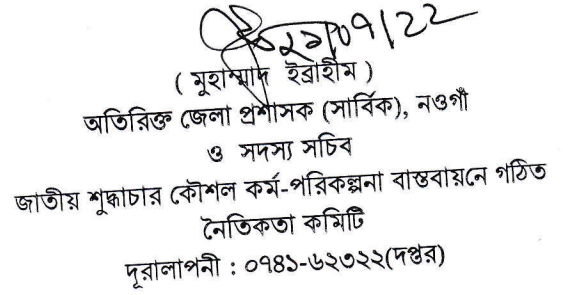 ২১/০৭/২২
( মুহাম্মাদ ইব্রাহীম )
অতিরিক্ত জেলা প্রশাসক (সার্বিক), নওগাঁ
ও সদস্য সচিব
জাতীয় শুদ্ধাচার কৌশল কর্ম-পরিকল্পনা বাস্তবায়নে গঠিত
নৈতিকতা কমিটি
দূরালাপনী : ০৭৪১-৬২৩২২(দপ্তর)